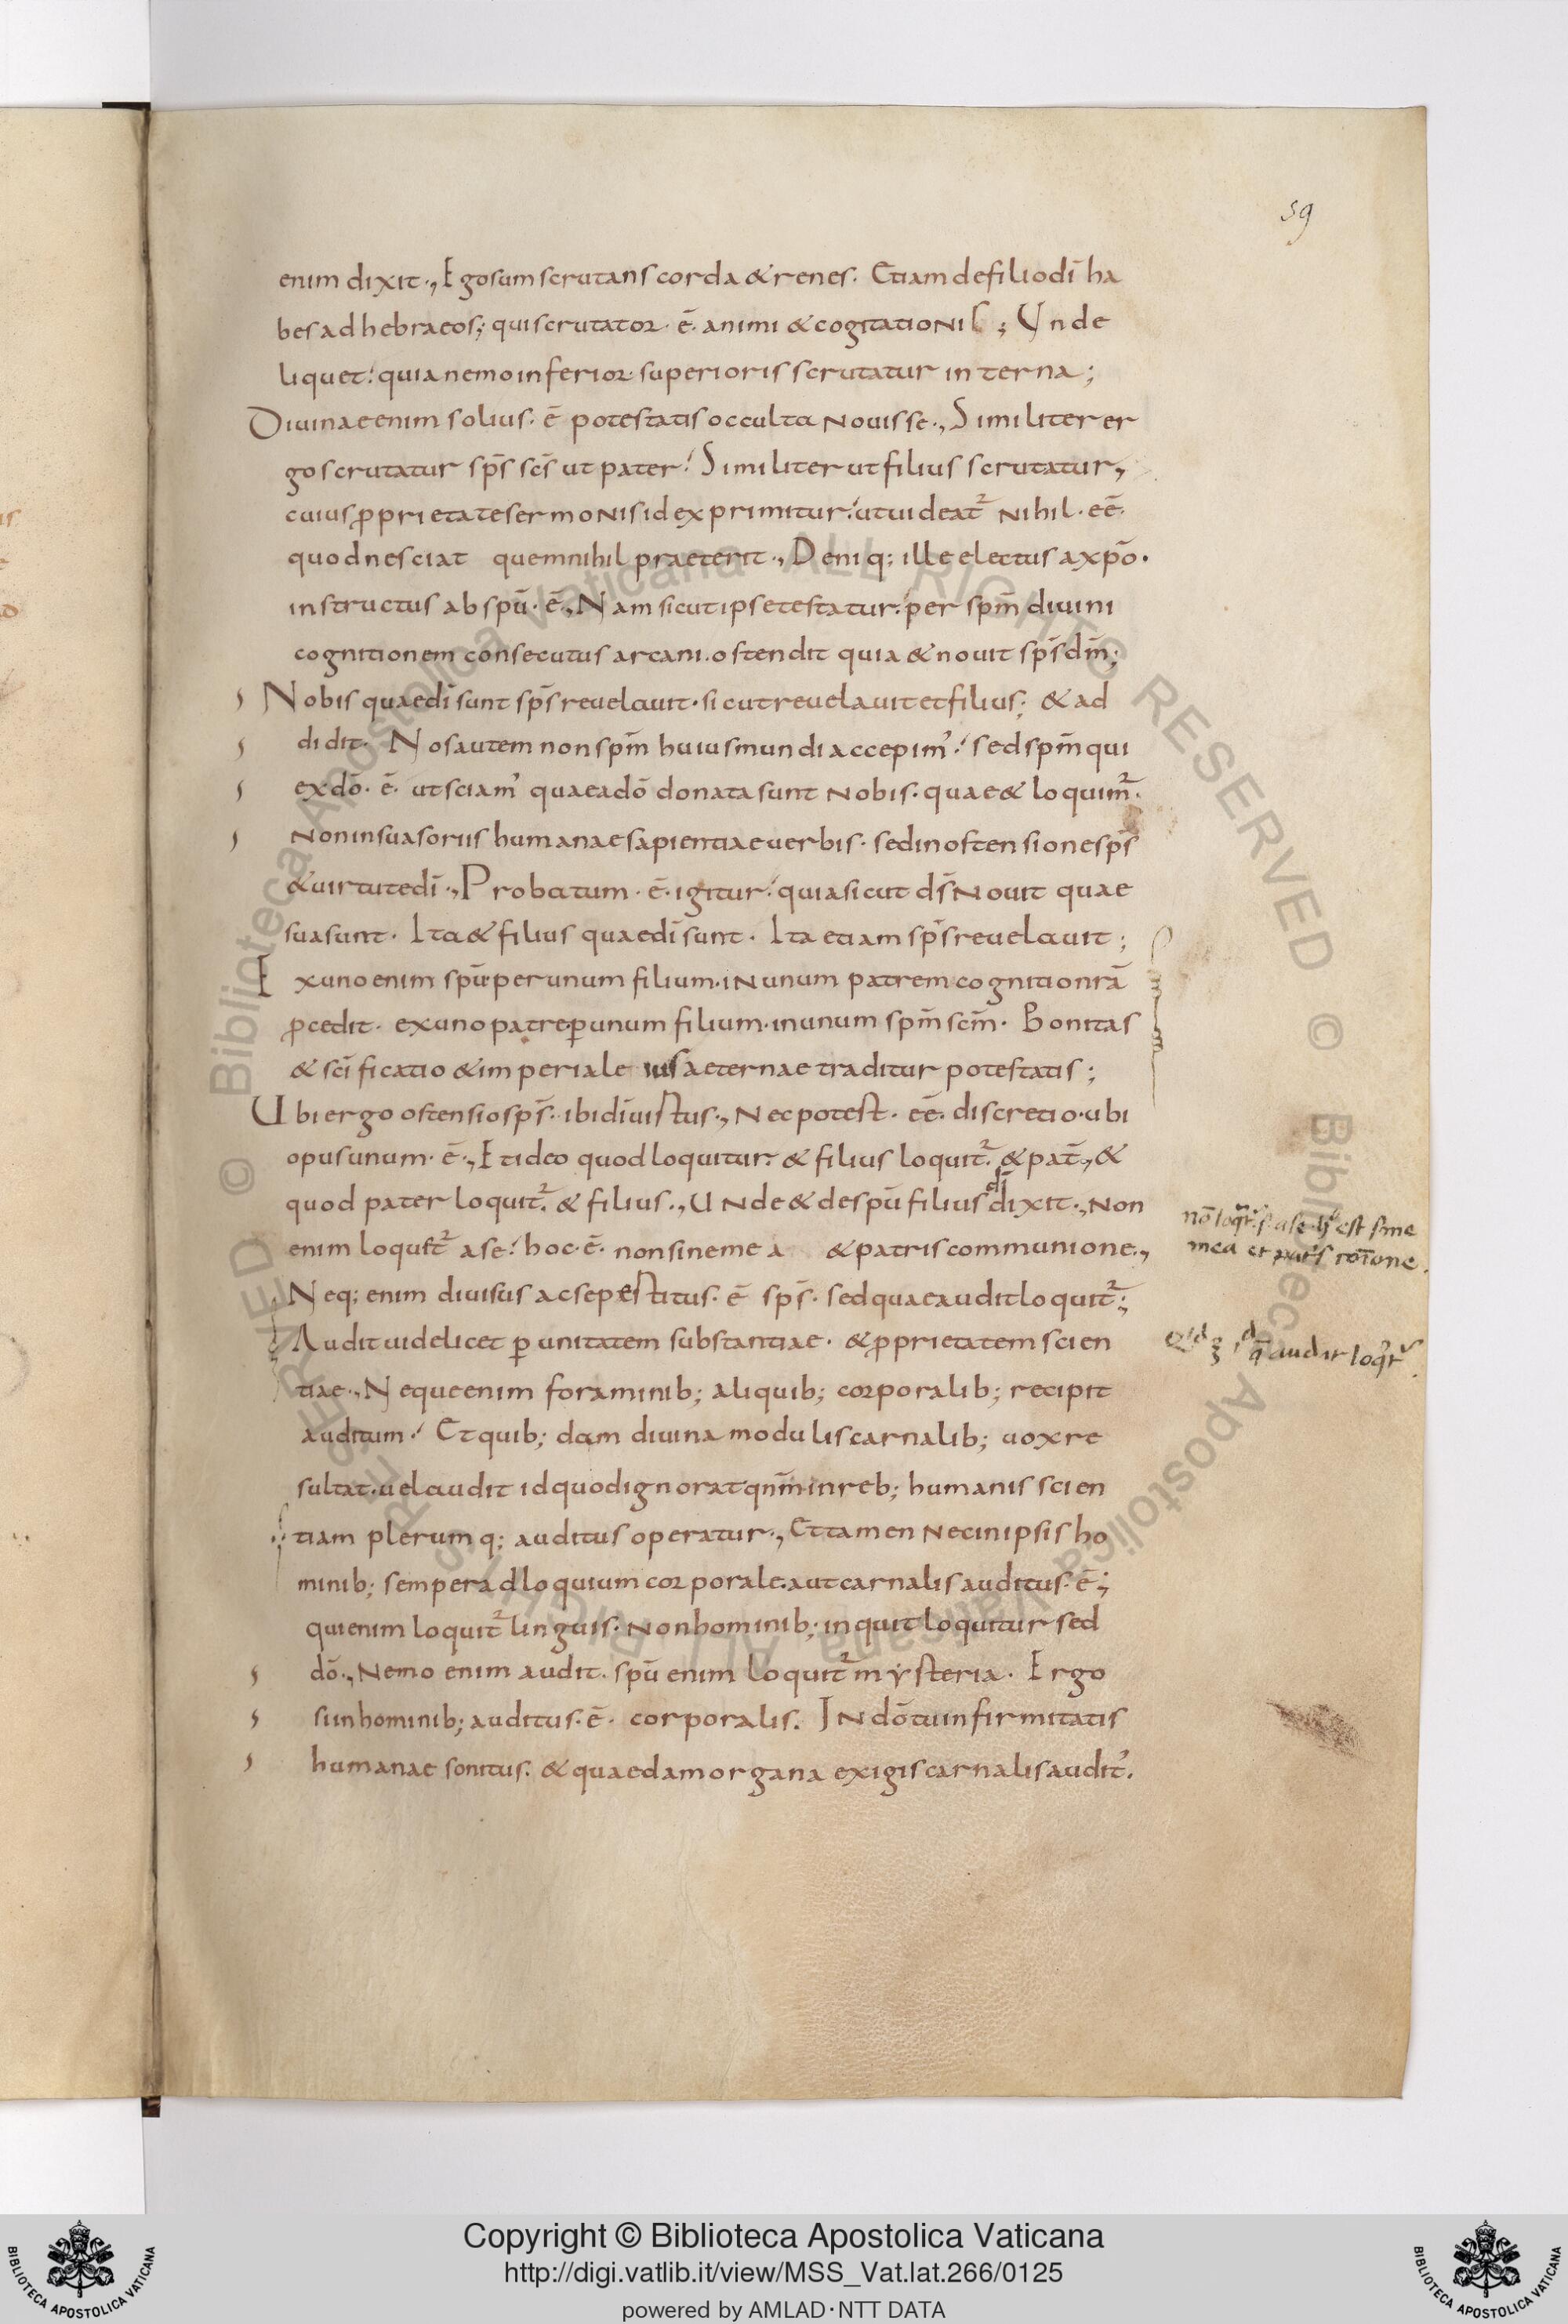 59
enim dixit., Ego sum scrutans corda & renes. Etiam de filio dī ha
bes ad hebraeos; qui scrutator. ē. animi & cogitationis; Unde
liquet: quia nemo inferior superioris scrutatur interna;
Divinae enim solius. ē potestatis occulta novisse., Similiter er
go scrutatur sp̄s sc̄s ut pater: Similiter ut filius scrutatur,
cuius ꝓprietate sermonis id exprimitur: ut videat᷑ nihil. eē.
quod nesciat quem nihil praeterit., Deniq; ille electus a xp̄o.
instructus ab spū. ē., Nam sicut ipse testatur: per sp̄m divini
cognitionem consecutus arcani. ostendit quia & novit sp̄s dm̄;
Nobis quae dī sunt sp̄s revelavit. sicut revelavit et filius; & ad
didit. Nos autem non sp̄m huius mundi accepim᾽: sed sp̄m qui
ex dō. ē. ut sciam᾽ quae a dō donata sunt nobis. quae & loquim᷑.
Non in suasoriis humanae sapientiae verbis. sed in ostensione sp̄s
& virtute dī., Probatum. ē. igitur: quia sicut ds̄ novit quae
sua sunt. Ita & filius quae dī sunt. Ita etiam sp̄s revelavit;
Ex uno enim spū per unum filium. in unum patrem cognitio nrā
ꝓcedit. ex uno patre ꝑ unum filium. in unum sp̄m scm̄. Bonitas
& scīficatio & imperiale ius aeternae traditur potestatis;
Ubi ergo ostensio sp̄s. ibi dī virtus., Nec potest. eē. discretio. ubi
opus unum. ē., Et ideo quod loquitur & filius loquit᷑. & pat̄., &
quod pater loquit᷑. & filius., Unde & de spū filius dī dixit., Non
enim loquit᷑ a se: hoc. ē. non sine me a & patris communione.,
Neq; enim divisus ac separatus. ē sp̄s. sed quae audit loquit᷑;
Audit videlicet ꝑ unitatem substantiae. & ꝓprietatem scien
tiae., Neque enim foraminib; aliquib; corporalib; recipit
auditum: Et quib;dam divina modulis carnalib; vox re
sultat. vel audit id quod ignorat qn̄m in reb; humanis scien
tiam plerumq; auditus operatur., Et tamen nec in ipsis ho
minib; semper adloquium corporale. aut carnalis auditus. ē;
qui enim loquit᷑ linguis. Non hominib; inquit loquitur sed
dō., Nemo enim audit. spū enim loquit᷑ mysteria. Ergo
si in hominib; auditus. ē. corporalis. In dō tu infirmitatis
humanae sonitus. & quaedam organa exigis carnalis audit᾽.
mea et
audit
Copyright © Biblioteca Apostolica Vaticana
http://digi.vatlib.it/view/MSS_Vat.lat.266/0125
powered by AMLAD·NTT DATA
BIBLIOTECA APOSTOLICA VATICANA
BIBLIOTECA APOSTOLICA VATICANA
© Biblioteca Apostolica Vaticana ALL RIGHTS RESERVED © Biblioteca Apostolica Vaticana ALL RIGHTS RESERVED